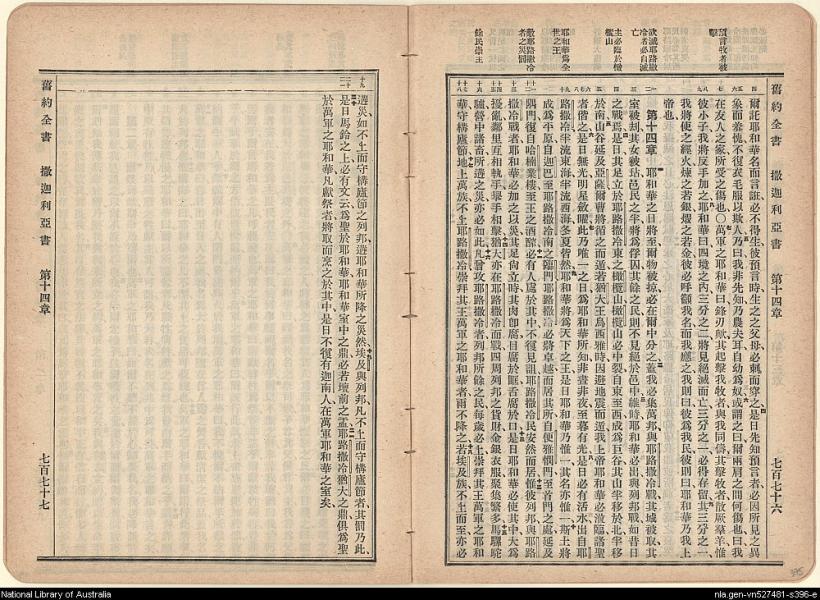 舊約全書　撒迦利亞書　第十四章　七百七十六
預言牧者被擊
試滅耶路撒冷者必自滅亡
主必臨於橄欖山
耶和華爲全世之王
敵耶路撒冷者之災罰
餘民崇王
爾託耶和華名而言誑必不得生彼預言時生之之父母必刺而穿之是日先知預言者必因所見之異
象而羞愧不復衣毛服以欺人乃曰我非先知乃農夫耳自幼爲奴或謂之曰爾兩肩之間何傷也曰我
在友人之家所受之傷也〇萬軍之耶和華曰鋒刃歟其起擊我牧者與我同儔其擊牧者散厥羣羊惟
彼小子我將反手加之耶和華曰四境之內三分之二將見絕滅而亡三分之一必得存留其三分之一
我將使之經火煉之若銀熬之若金彼必呼顧我名而我應之我則曰彼爲我民彼則曰耶和華乃我上
帝也
第十四章　耶和華之日將至爾物被掠必在爾中分之蓋我必集萬邦與耶路撒冷戰其城被取其
室被刦其女被玷邑民之半將爲俘囚其餘之民則不見絕於邑中維時耶和華必出與列邦戰如昔日
之戰焉是日其足立於耶路撒冷東之橄欖山橄欖山必中裂自東至西成爲巨谷其山半移於北半移
於南山谷延及亞薩爾曹將循之而遁若猶大王烏西雅時因避地震而遁我上帝耶和華必涖臨諸聖
者偕之是日無光明星斂曜此乃唯一之日爲耶和華所知非晝非夜至暮有光是日必有活水出自耶
路撒冷半流東海半流西海冬夏皆然耶和華將爲天下之王是日耶和華乃惟一其名亦惟一斯土將
成爲平原自迦巴至耶路撒冷南之臨門耶路撒冷必將卓越而居其所自便雅憫門至首門之處延及
隅門復自哈楠業樓至王之酒醡必有人處於其中不復見詛耶路撒冷民安然而居惟彼列邦與耶路
撒冷戰者耶和華必加之以災其足尙立時其肉卽腐目腐於眶舌腐於口是日耶和華必使其中大爲
擾亂鄰里互相執手舉手相擊猶大亦在耶路撒冷而戰四周列邦之貨財金銀衣服聚集繁多馬騾駝
驢營中諸畜所遘之災亦必如此凡曾攻耶路撒冷者列邦所餘之民每歲必上崇拜其王萬軍之耶和
華守構廬節地上萬族不上耶路撒冷崇拜其王萬軍之耶和華者雨不降之若埃及族不上而至亦必
遘災如不上而守構廬節之列邦遘耶和華所降之災然埃及與列邦凡不上而守構廬節者其罰乃此
是日馬鈴之上必有文云爲聖於耶和華耶和華室中之鼎必若壇前之盂耶路撒冷猶大之鼎俱爲聖
於萬軍之耶和華凡獻祭者將取而烹之於其中是日不復有迦南人在萬軍耶和華之室矣
舊約全書　撒迦利亞書　第十四章　七百七十七
National Library of Australia
nla.gen-vn527481-s396-e